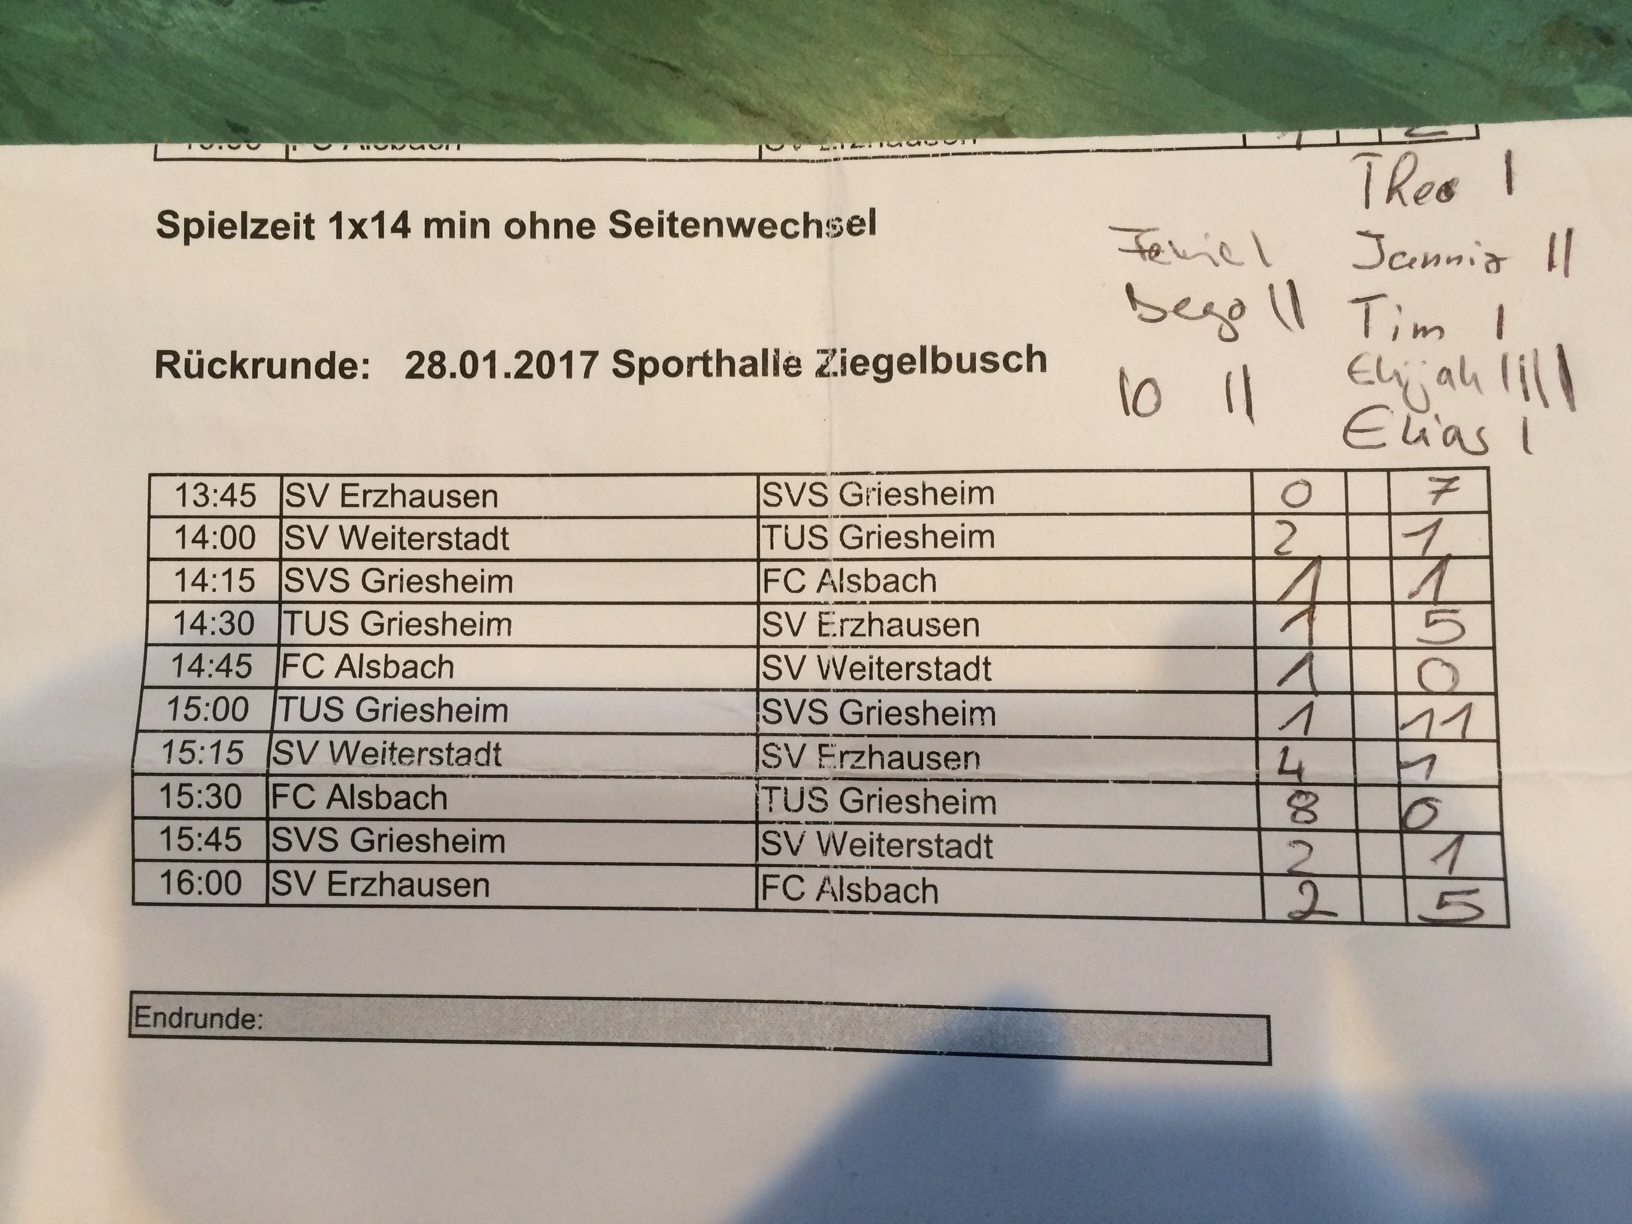 Theo |
Spielzeit 1x14 min ohne Seitenwechsel
Jannis ||
Bego ||
Tim |
Rückrunde: 28.01.2017 Sporthalle Ziegelbusch
10 ||
Elijah ||||
Elias |
13:45 SV Erzhausen SVS Griesheim 0 7
14:00 SV Weiterstadt TUS Griesheim 2 1
14:15 SVS Griesheim FC Alsbach 1 1
14:30 TUS Griesheim SV Erzhausen 1 5
14:45 FC Alsbach SV Weiterstadt 1 0
15:00 TUS Griesheim SVS Griesheim 1 11
15:15 SV Weiterstadt SV Erzhausen 4 1
15:30 FC Alsbach TUS Griesheim 8 0
15:45 SVS Griesheim SV Weiterstadt 2 1
16:00 SV Erzhausen FC Alsbach 2 5
Endrunde: